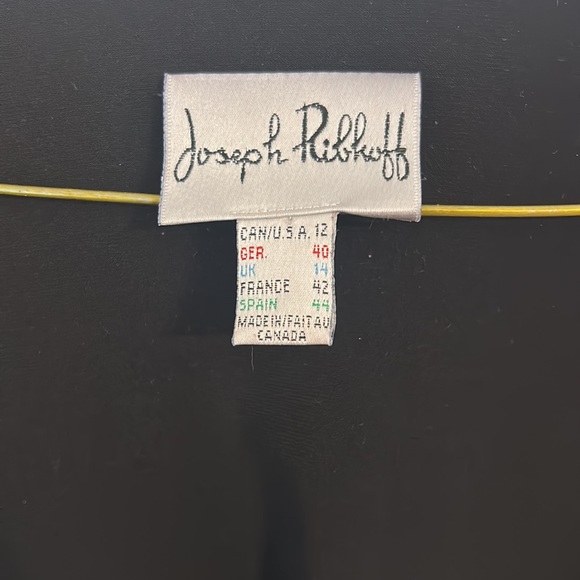 Joseph Ribkoff
CAN/U.S.A. 12
GER. 40
UK 14
FRANCE 42
SPAIN 44
MADE IN/FAIT AU
CANADA